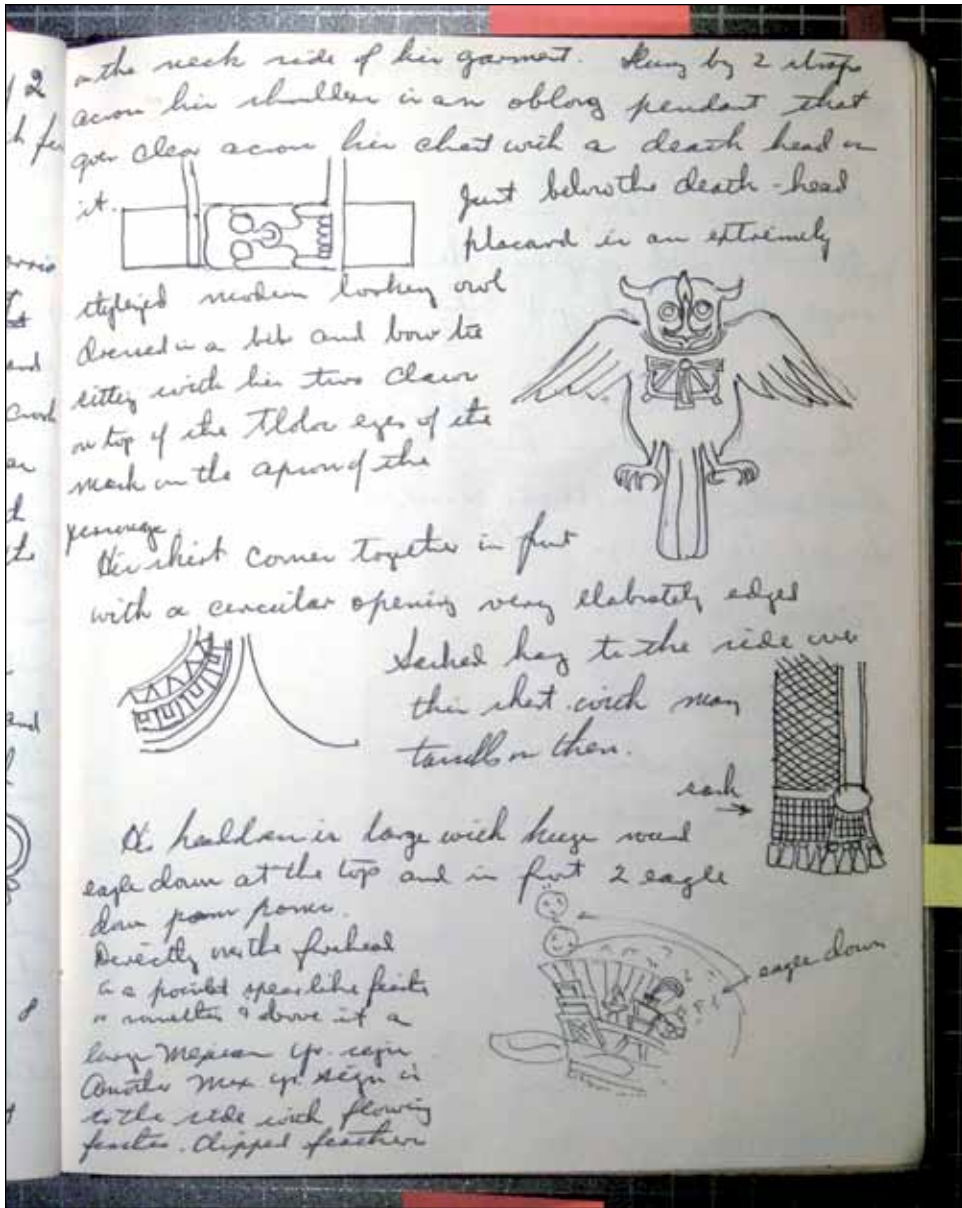 on the neck side of his garment. Hung by 2 straps
across his shoulders is an oblong pendant that
goes clear across his chest with a death head on
it.
Just below the death-head
placard is an extremely
stylized modern looking owl
dressed in a bib and bow tie
sitting with his two claws
on top of the Tlaloc eyes of the
mask on the apron of the
personage.
His skirt comes together in front
with a circular opening very elabrately edged
Sashes hang to the side over
this skirt with many
tassells on them.
sash
His headdress is large with huge round
eagle down at the top and in front 2 eagle
down
Directly over the forehead
is a pointed spearlike feather
& above it a
large Mexican yr. sign
Another Mex yr. sign is
to the side with flowing
feathers. Clipped feathers
eagle down
2
and
and
8